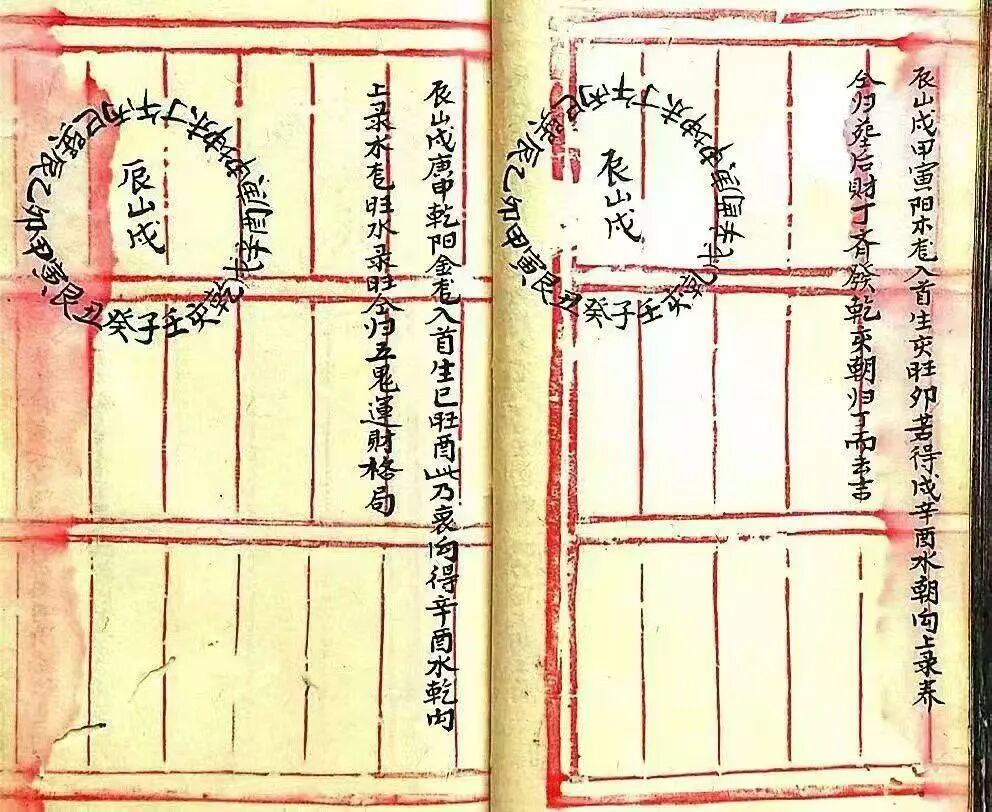 辰山戌甲寅阳木龙入首生亥旺卯若得戌辛酉水朝向上录养
合归葬后財丁斉發乾亥朝归丁而去吉
辰山戌
壬子癸丑艮寅甲卯乙辰巽巳丙午丁未坤申庚酉辛戌乾亥
辰山戌庚申乾阳金龙入首生巳旺酉此乃衰向得辛酉水乾向
上录水龙旺水录旺合归五鬼運財格局
辰山戌
壬子癸丑艮寅甲卯乙辰巽巳丙午丁未坤申庚酉辛戌乾亥